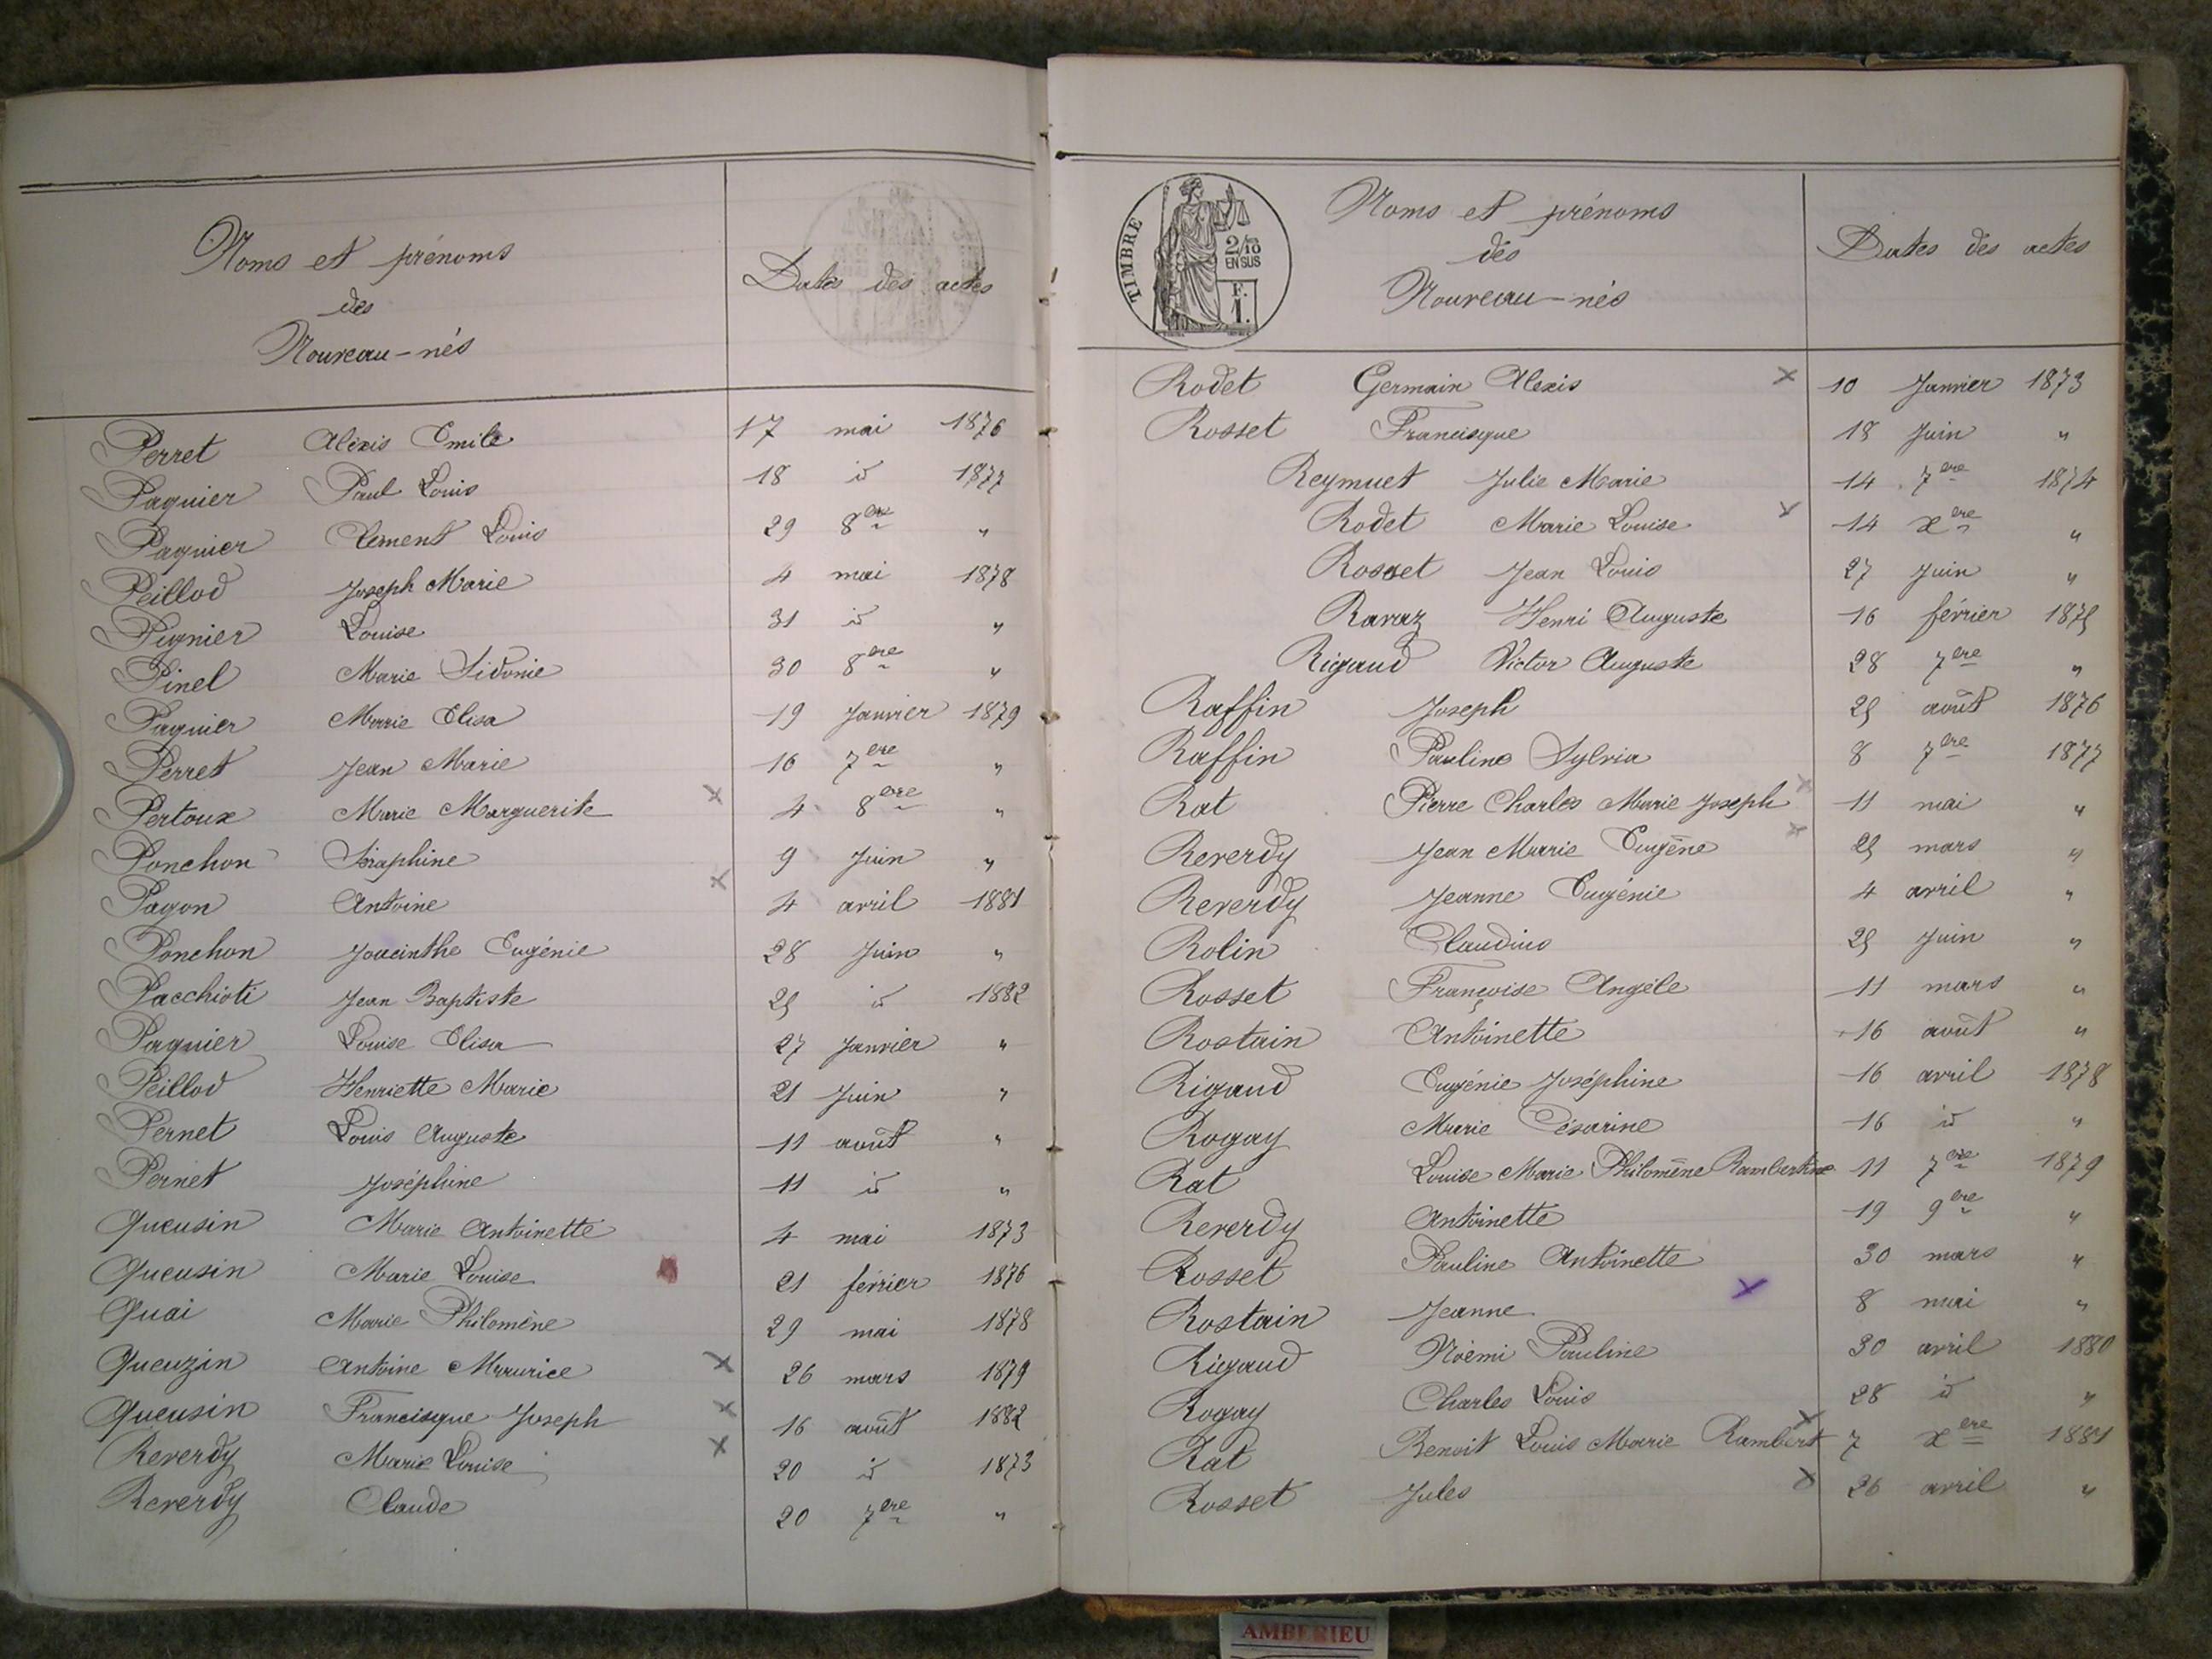 Noms et prénoms
des
Nouveau-nés
Dates des actes
Perret Alexis Emile 17 mai 1876
Paquier Paul Louis 18 id 1877
Paquier Clement Louis 29 8ere "
Peillod Joseph Marie 4 mai 1878
Pignier Louise 31 id "
Pinel Marie Sidonie 30 8ere "
Paquier Marie Elisa 19 Janvier 1879
Perret Jean Marie 16 7ere "
Pertoux Marie Marguerite x 4 8ere "
Ponchon Séraphine 9 Juin "
Pagon Antoine x 4 avril 1881
Ponchon Jaucinthe Eugénie 28 Juin "
Pacchioti Jean Baptiste 25 id 1882
Paquier Louise Elisa 27 Janvier "
Peillod Henriette Marie 21 Juin "
Pernet Louis Auguste 11 août "
Pernet Joséphine 11 id "
Queusin Marie Antoinette 4 mai 1873
Queusin Marie Louise 21 février 1876
Quai Marie Philomène 29 mai 1878
Queuzin Antoine Maurice x 26 mars 1879
Queusin Francisque Joseph x 16 août 1882
Reverdy Marie Louise x 20 id 1873
Reverdy Claude 20 7ere "
TIMBRE
2/10
EN SUS
F.
1.
Noms et prénoms
des
Nouveau-nés
Dates des actes
Rodet Germain Alexis x 10 Janvier 1873
Rosset Francisque 18 Juin "
Reymuet Julie Marie 14 7ere 1874
Rodet Marie Louise x 14 xere "
Rosset Jean Louis 27 Juin "
Ravaz Henri Auguste 16 février 1875
Rigaud Victor Auguste 28 7ere "
Raffin Joseph 25 août 1876
Raffin Pauline Sylvia 8 7ere 1877
Rat Pierre Charles Marie Joseph x 11 mai "
Reverdy Jean Marie Eugène x 25 mars "
Reverdy Jeanne Eugénie 4 avril "
Rolin Claudius 25 Juin "
Rosset Françoise Angèle 11 mars "
Rostain Antoinette 16 août "
Rigaud Eugénie Joséphine 16 avril 1878
Rogay Marie Césarine 16 id "
Rat Louise Marie Philomène Rambertine 11 7ere 1879
Reverdy Antoinette 19 9ere "
Rosset Pauline Antoinette 30 mars "
Rostain Jeanne x 8 mai "
Rigaud Noémi Pauline 30 avril 1880
Rogay Charles Louis 28 id "
Rat Benoit Louis Marie Rambert x 7 xere 1881
Rosset Jules x 26 avril "
AMBERIEU